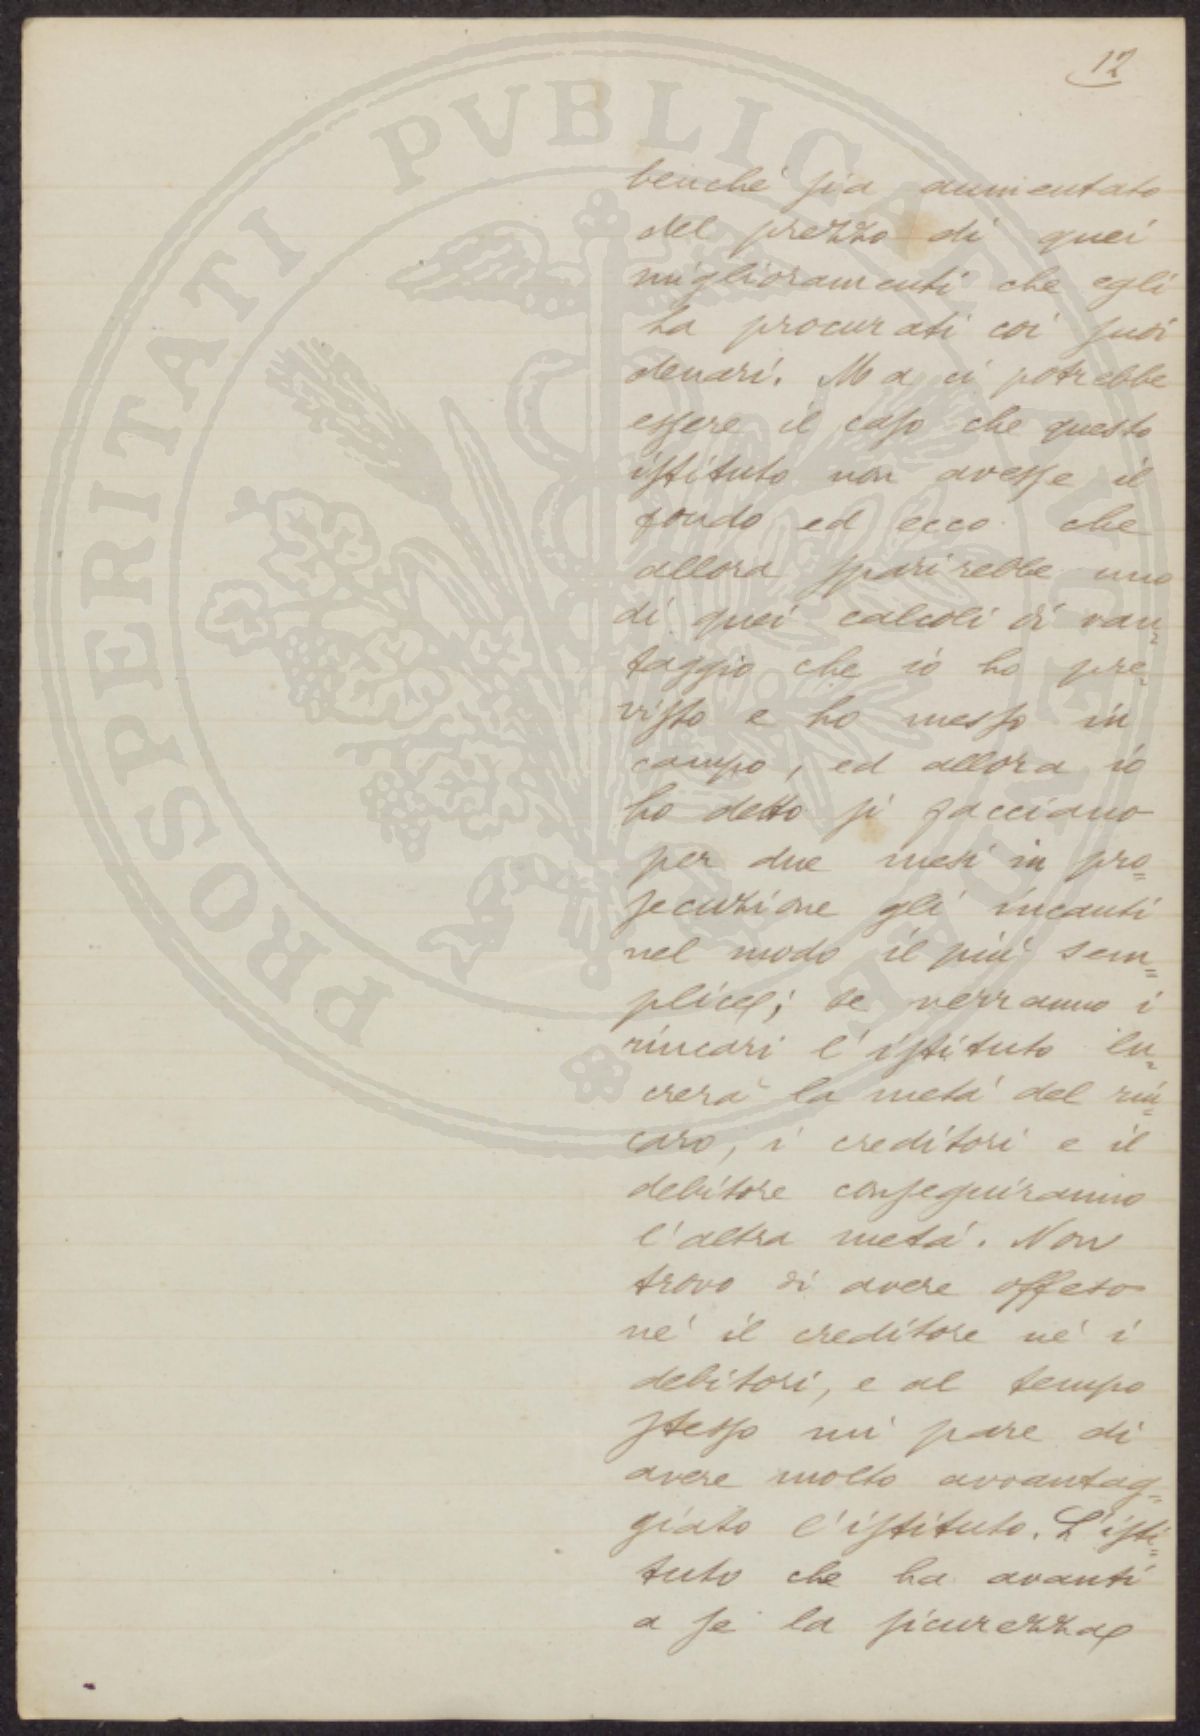 12
benché sia aumentato
del prezzo di quei
miglioramenti che egli
ha procurati coi suoi
denari. Ma ci potrebbe
essere il caso che questo
istituto non avesse il
fondo ed ecco che
allora sparirebbe uno
di quei calcoli di van=
taggio che io ho pre=
visto e ho messo in
campo, ed allora io
ho detto si facciano
per due mesi in pro=
secuzione gli incanti
nel modo il più sem=
plice; se verranno i
rincari l'istituto lu=
crerà la metà del rin=
caro, i creditori e il
debitore conseguiranno
l'altra metà. Non
trovo di avere offeso
né il creditore né i
debitori, e al tempo
stesso mi pare di
avere molto avvantag=
giato l'istituto. L'isti=
tuto che ha avanti
a se la sicurezza
PROSPERITATI PVBLICAE